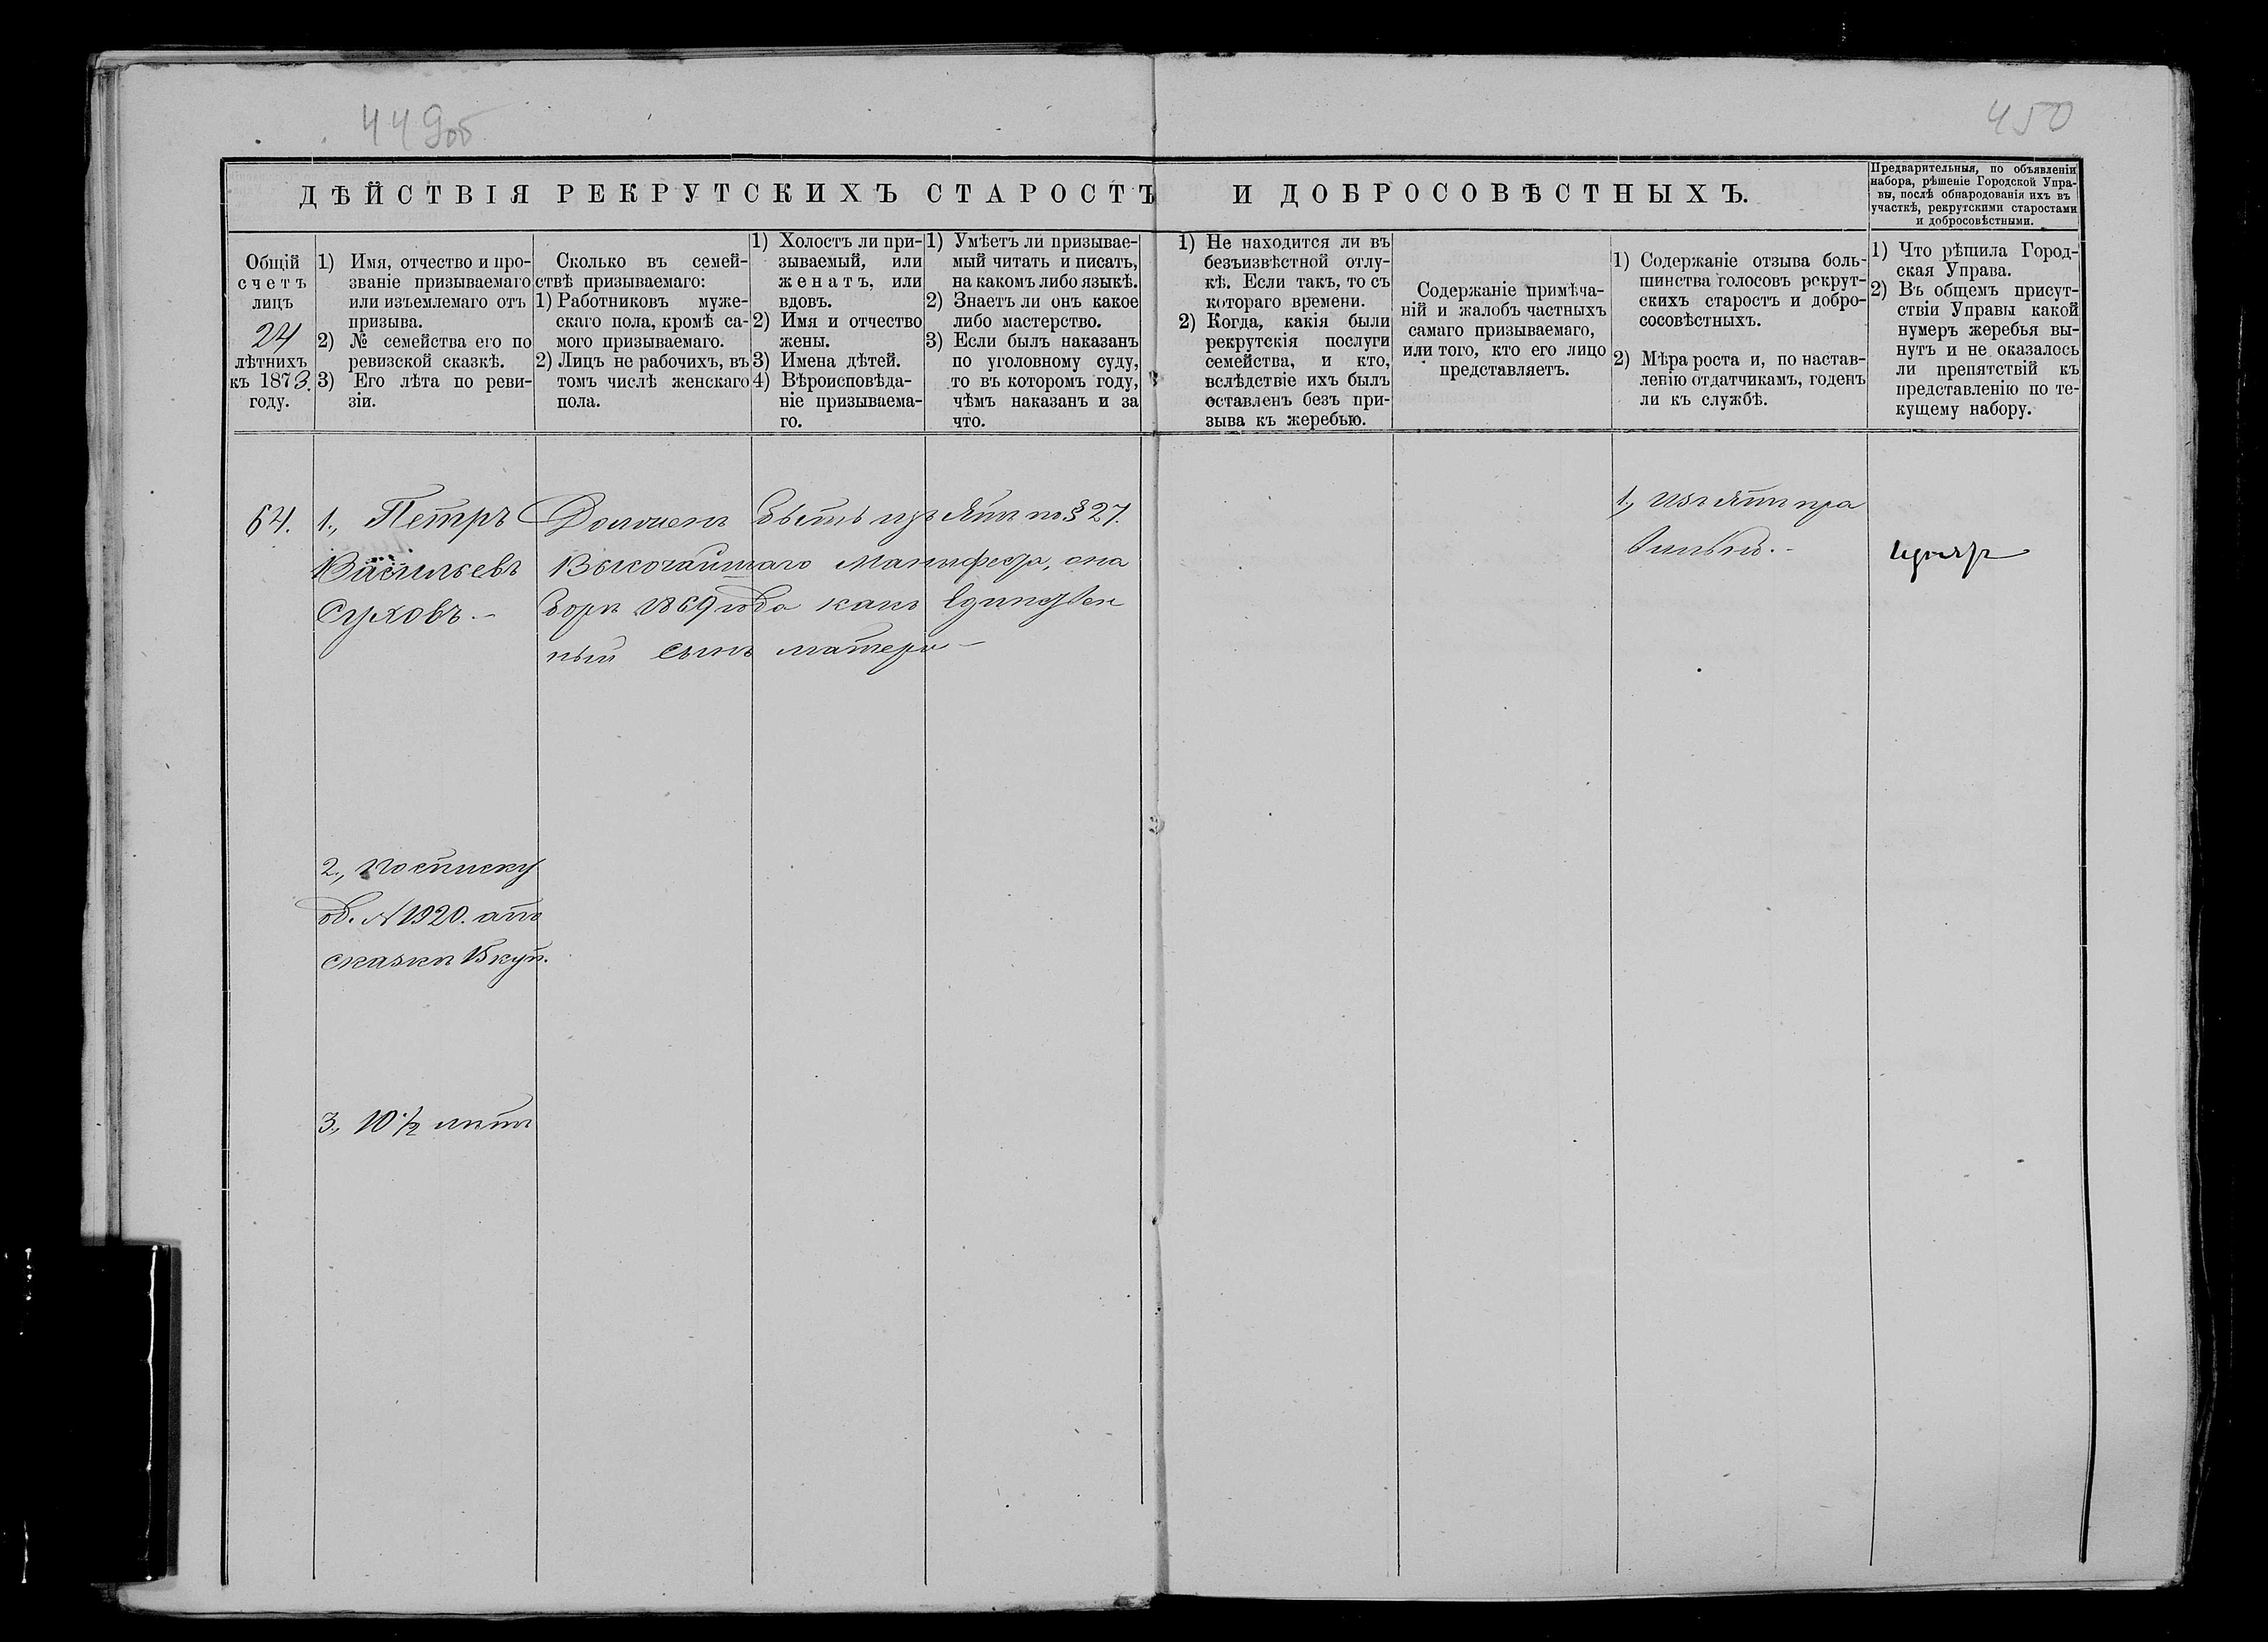 449об
450
ДѢЙСТВІЯ РЕКРУТСКИХЪ СТАРОСТЪ И ДОБРОСОВѢСТНЫХЪ.
Предварительныя, по объявленіи
набора, рѣшеніе Городской Упра-
вы, послѣ обнародованія ихъ въ
участкѣ, рекрутскими старостами
и добросовѣстными.
Общій
счетъ
лицъ
24
лѣтнихъ
къ 1873.
году.
1) Имя, отчество и про-
званіе призываемаго
или изъемлемаго отъ
призыва.
2) № семейства его по
ревизской сказкѣ.
3) Его лѣта по реви-
зіи.
Сколько въ семей-
ствѣ призываемаго:
1) Работниковъ муже-
скаго пола, кромѣ са-
мого призываемаго.
2) Лицъ не рабочихъ, въ
томъ числѣ женскаго
пола.
1) Холостъ ли при-
зываемый, или
женатъ, или
вдовъ.
2) Имя и отчество
жены.
3) Имена дѣтей.
4) Вѣроисповѣда-
ніе призываема-
го.
1) Умѣетъ ли призывае-
мый читать и писать,
на какомъ либо языкѣ.
2) Знаетъ ли онъ какое
либо мастерство.
3) Если былъ наказанъ
по уголовному суду,
то въ которомъ году,
чѣмъ наказанъ и за
что.
1) Не находится ли въ
безъизвѣстной отлу-
кѣ. Если такъ, то съ
котораго времени.
2) Когда, какія были
рекрутскія послуги
семейства, и кто,
вслѣдствіе ихъ былъ
оставленъ безъ при-
зыва къ жеребью.
Содержаніе примѣча-
ній и жалобъ частныхъ
самаго призываемаго,
или того, кто его лицо
представляетъ.
1) Содержаніе отзыва боль-
шинства голосовъ рекрут-
скихъ старостъ и добро-
сосовѣстныхъ.
2) Мѣра роста и, по настав-
ленію отдатчикамъ, годенъ
ли къ службѣ.
1) Что рѣшила Город-
ская Управа.
2) Въ общемъ присут-
ствіи Управы какой
нумеръ жеребья вы-
нутъ и не оказалось
ли препятствій къ
представленію по те-
кущему набору.
64.
1., Петръ
Васильевъ
Суховъ.-
Долженъ быть изъятъ по § 27.
Высочайшаго Манифеста, о на
борѣ 1869 года какъ единствен
ный сынъ матери -
1., Изъятъ пра
вильно.-
2., по списку
об. № 1920. а по
сказкѣ Вкуп.
3., 10 ½ лѣтъ